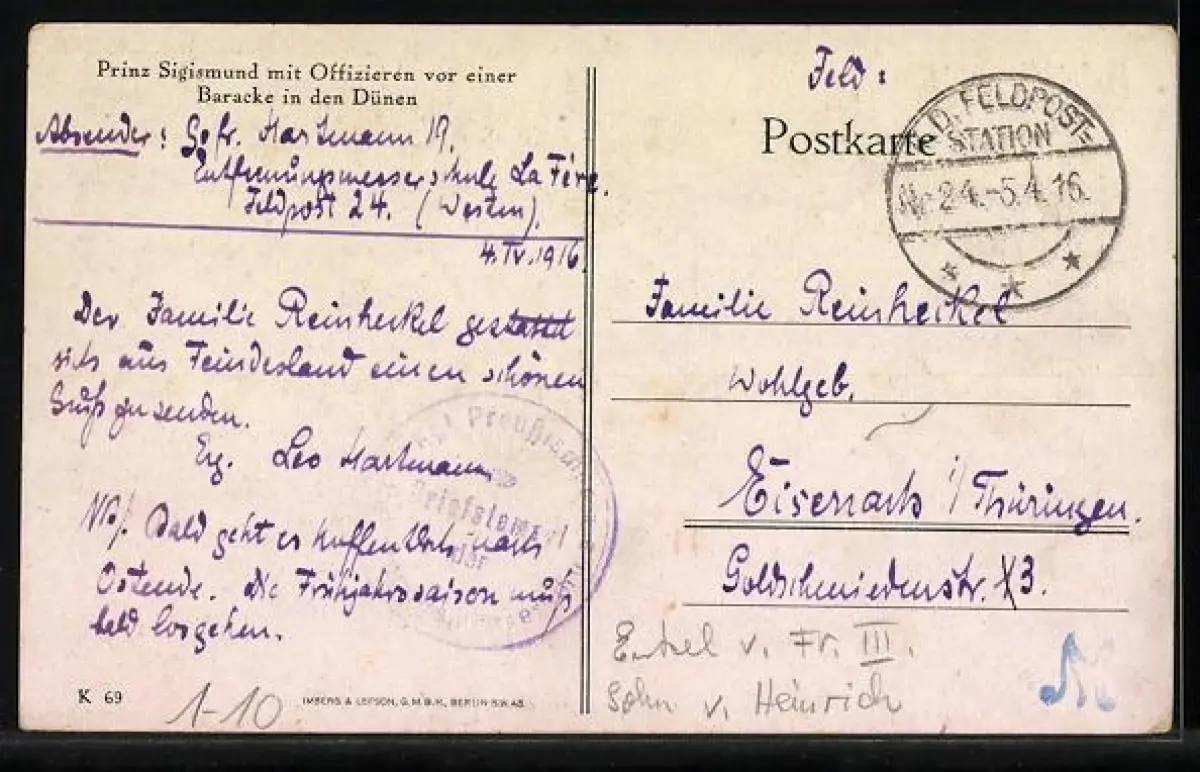 Prinz Sigismund mit Offizieren vor einer
Baracke in den Dünen
Absender: Gefr. Hartmann 19.
Entfernungsmesserschule La Fère.
Feldpost 24. (Westen).
4. IV. 1916.
Der Familie Reinheckel gestattet
sich aus Feindesland einen schönen
Gruß zu senden.
Erg. Leo Hartmann
NB/. Bald geht es hoffentlich nach
Ostende. Die Frühjahrssaison muß
bald losgehen.
K 69
1-10
IMBERG & LEFSON, G.M.B.H., BERLIN S.W. 48.
Königl Preußische
Briefstempel
Feld:
Postkarte
D. FELDPOST=
STATION
Nr. 24. -5.4.16.
Familie Reinheckel
Wohlgeb.
Eisenach i/Thüringen.
Goldschmiedenstr. 3.
Enkel v. Fr. III.
Sohn v. Heinrich